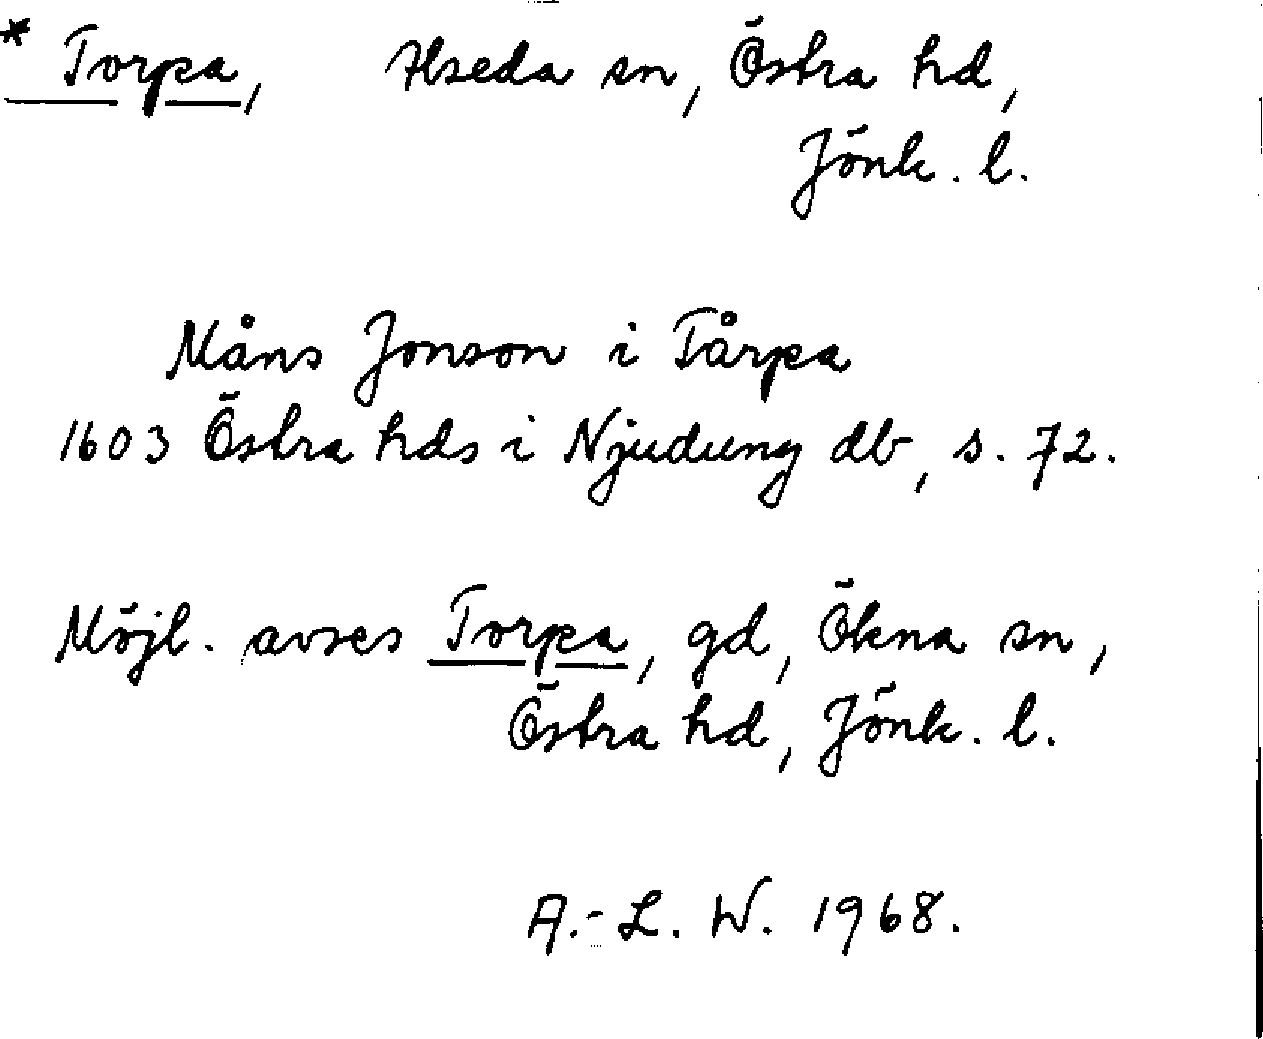 * Torpa, Alseda sn, Östra hd,
Jönk. l.
Måns Jonson i Tårpa
1603 Östra hds i Njudung db, s. 72.
Möjl. avses Torpa, gd, Ökna sn,
Östra hd, Jönk. l.
A.-L. W. 1968.